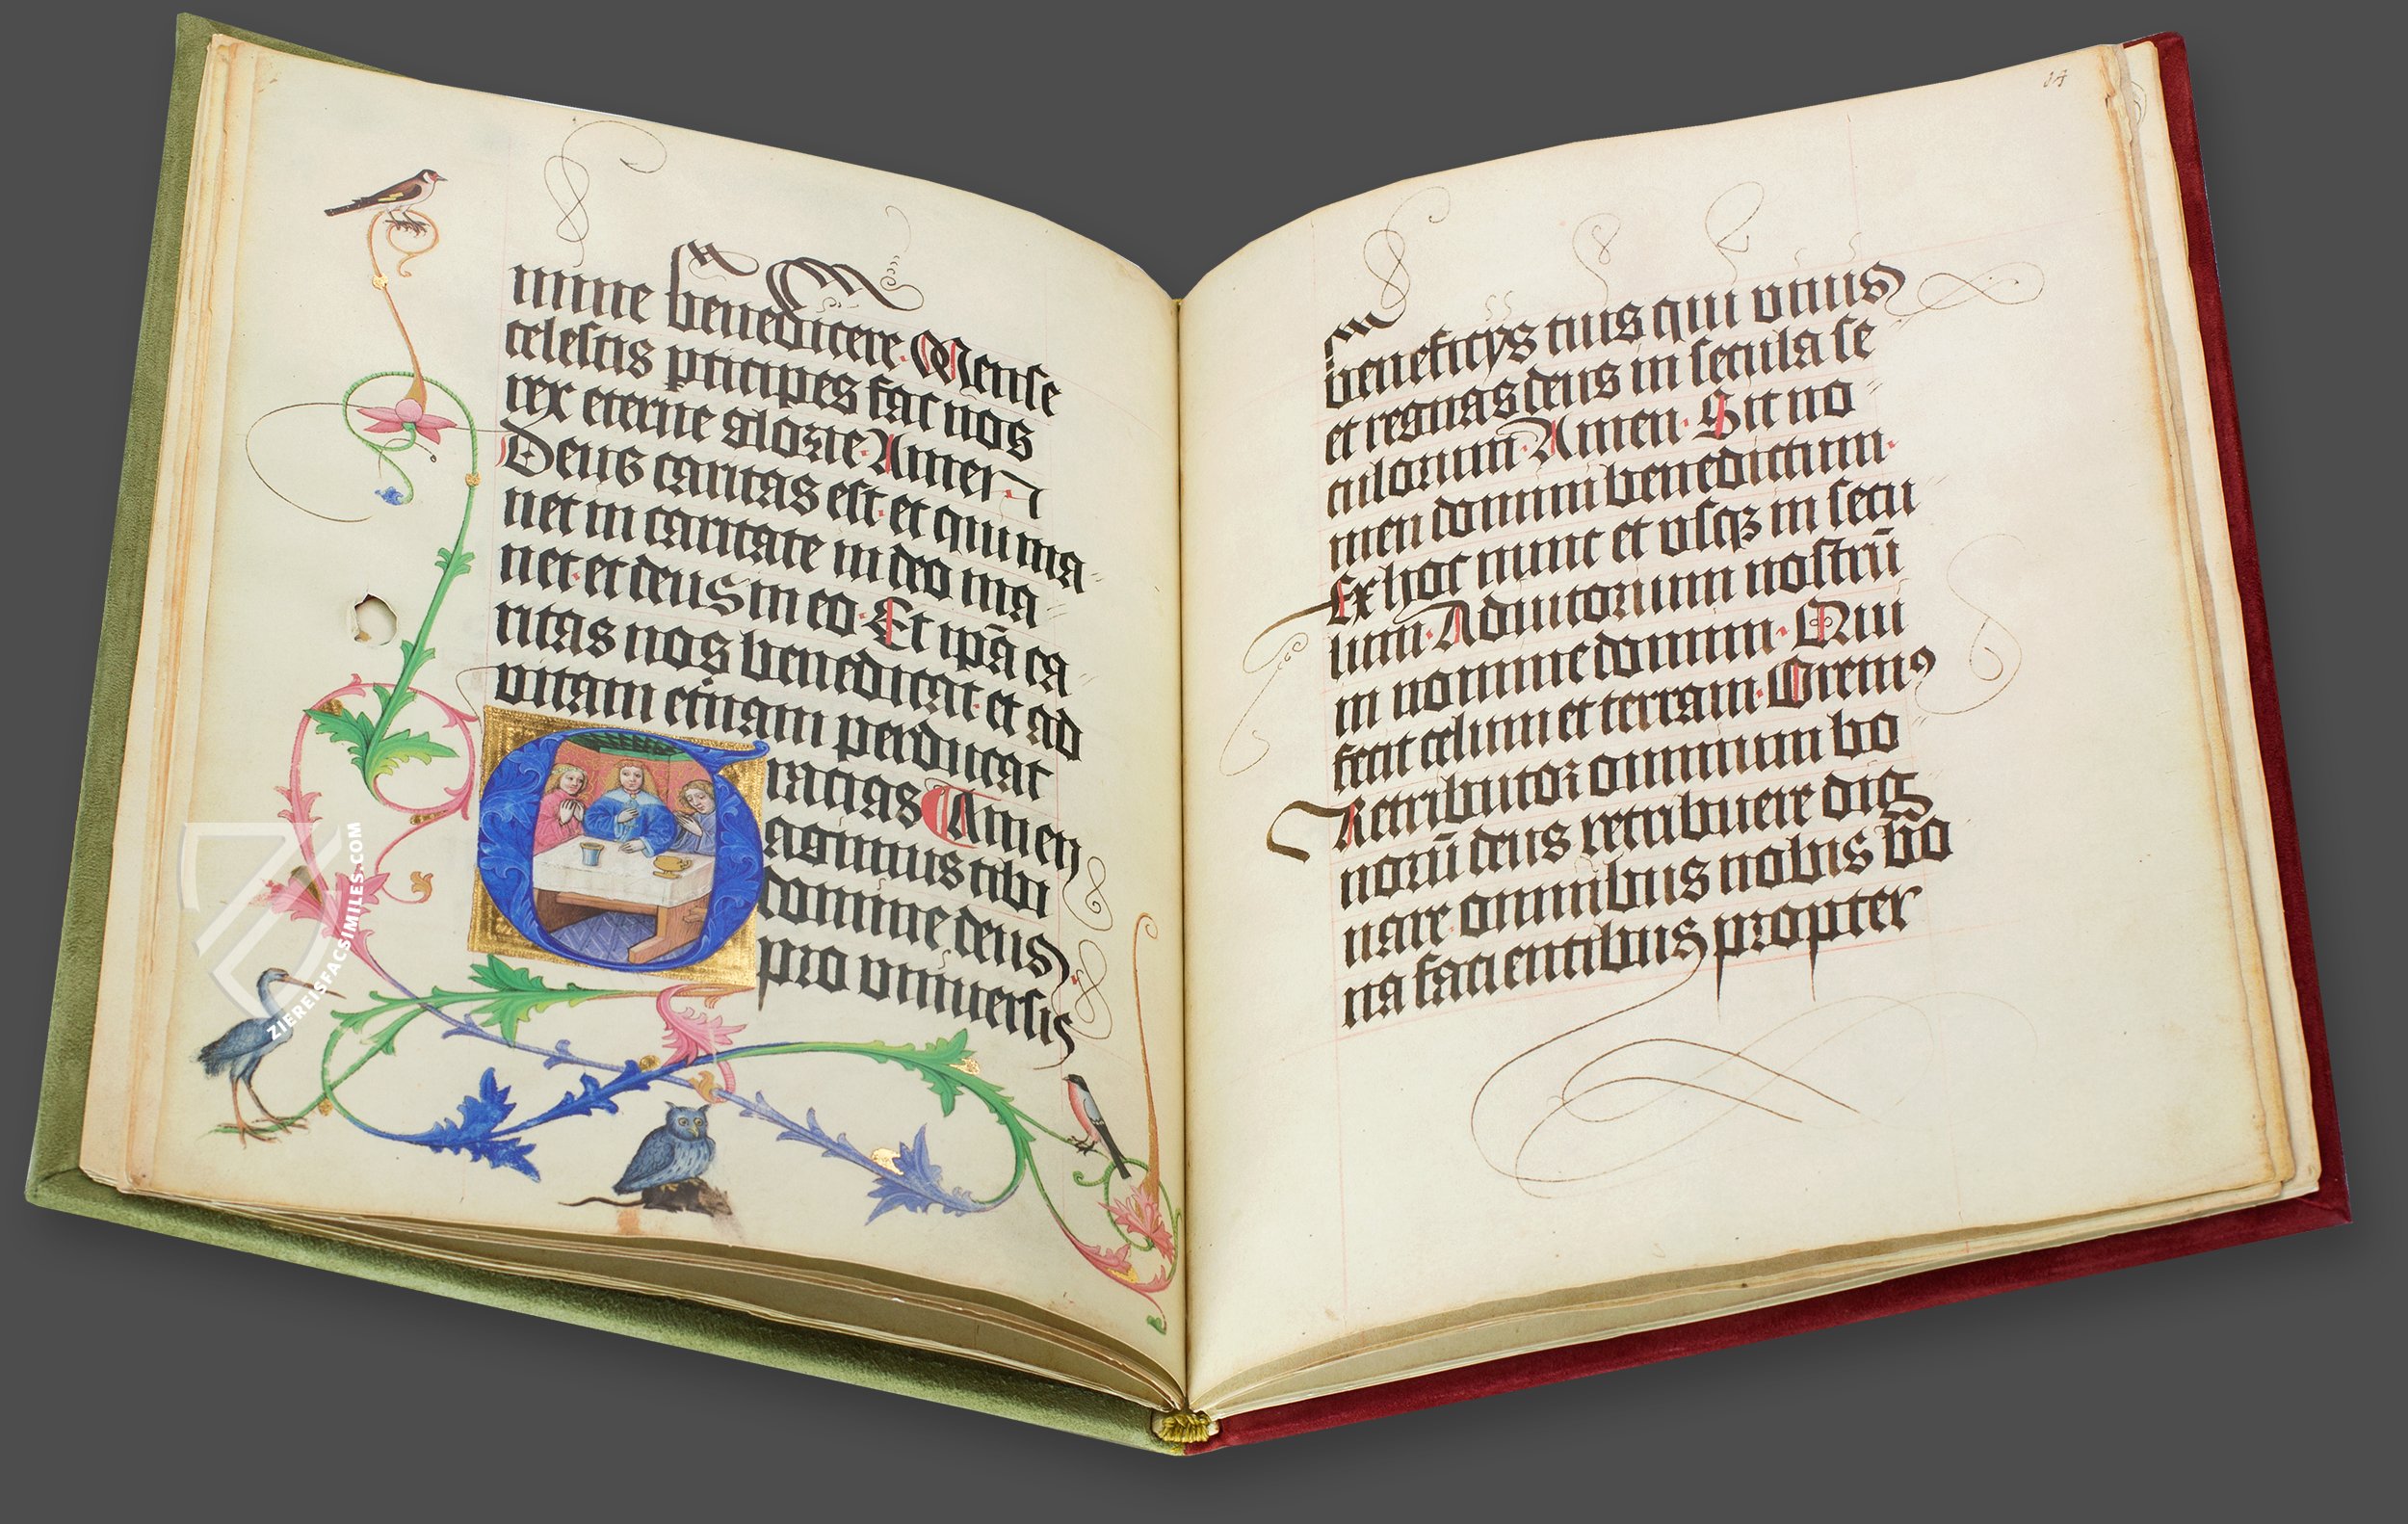 mine benedicere. Mense
celestis pticipes fac nos
rex eterne glorie. Amen.
Deus caritas est. et qui ma-
net in caritate in deo ma-
net. et deus in eo. Et ipā ca-
ritas nos benedicat. et ad
vitam etnam perducat
ratias Amen
agimus tibi
domine deus
pro vniuersis
ZIEREISFACSIMILES.COM
beneficijs tuis qui viuis
et regnas deus in secula se
culorum. Amen. Sit no-
men domini benedictum.
Ex hoc nunc et vsqz in secu
lum. Adiutorium nostrū
in nomine domini. Qui
fecit celum et terram. Oremꝰ
Retributor omnium bo
norū deus retribuere dig
nare omnibus nobis bo
na facientibus propter